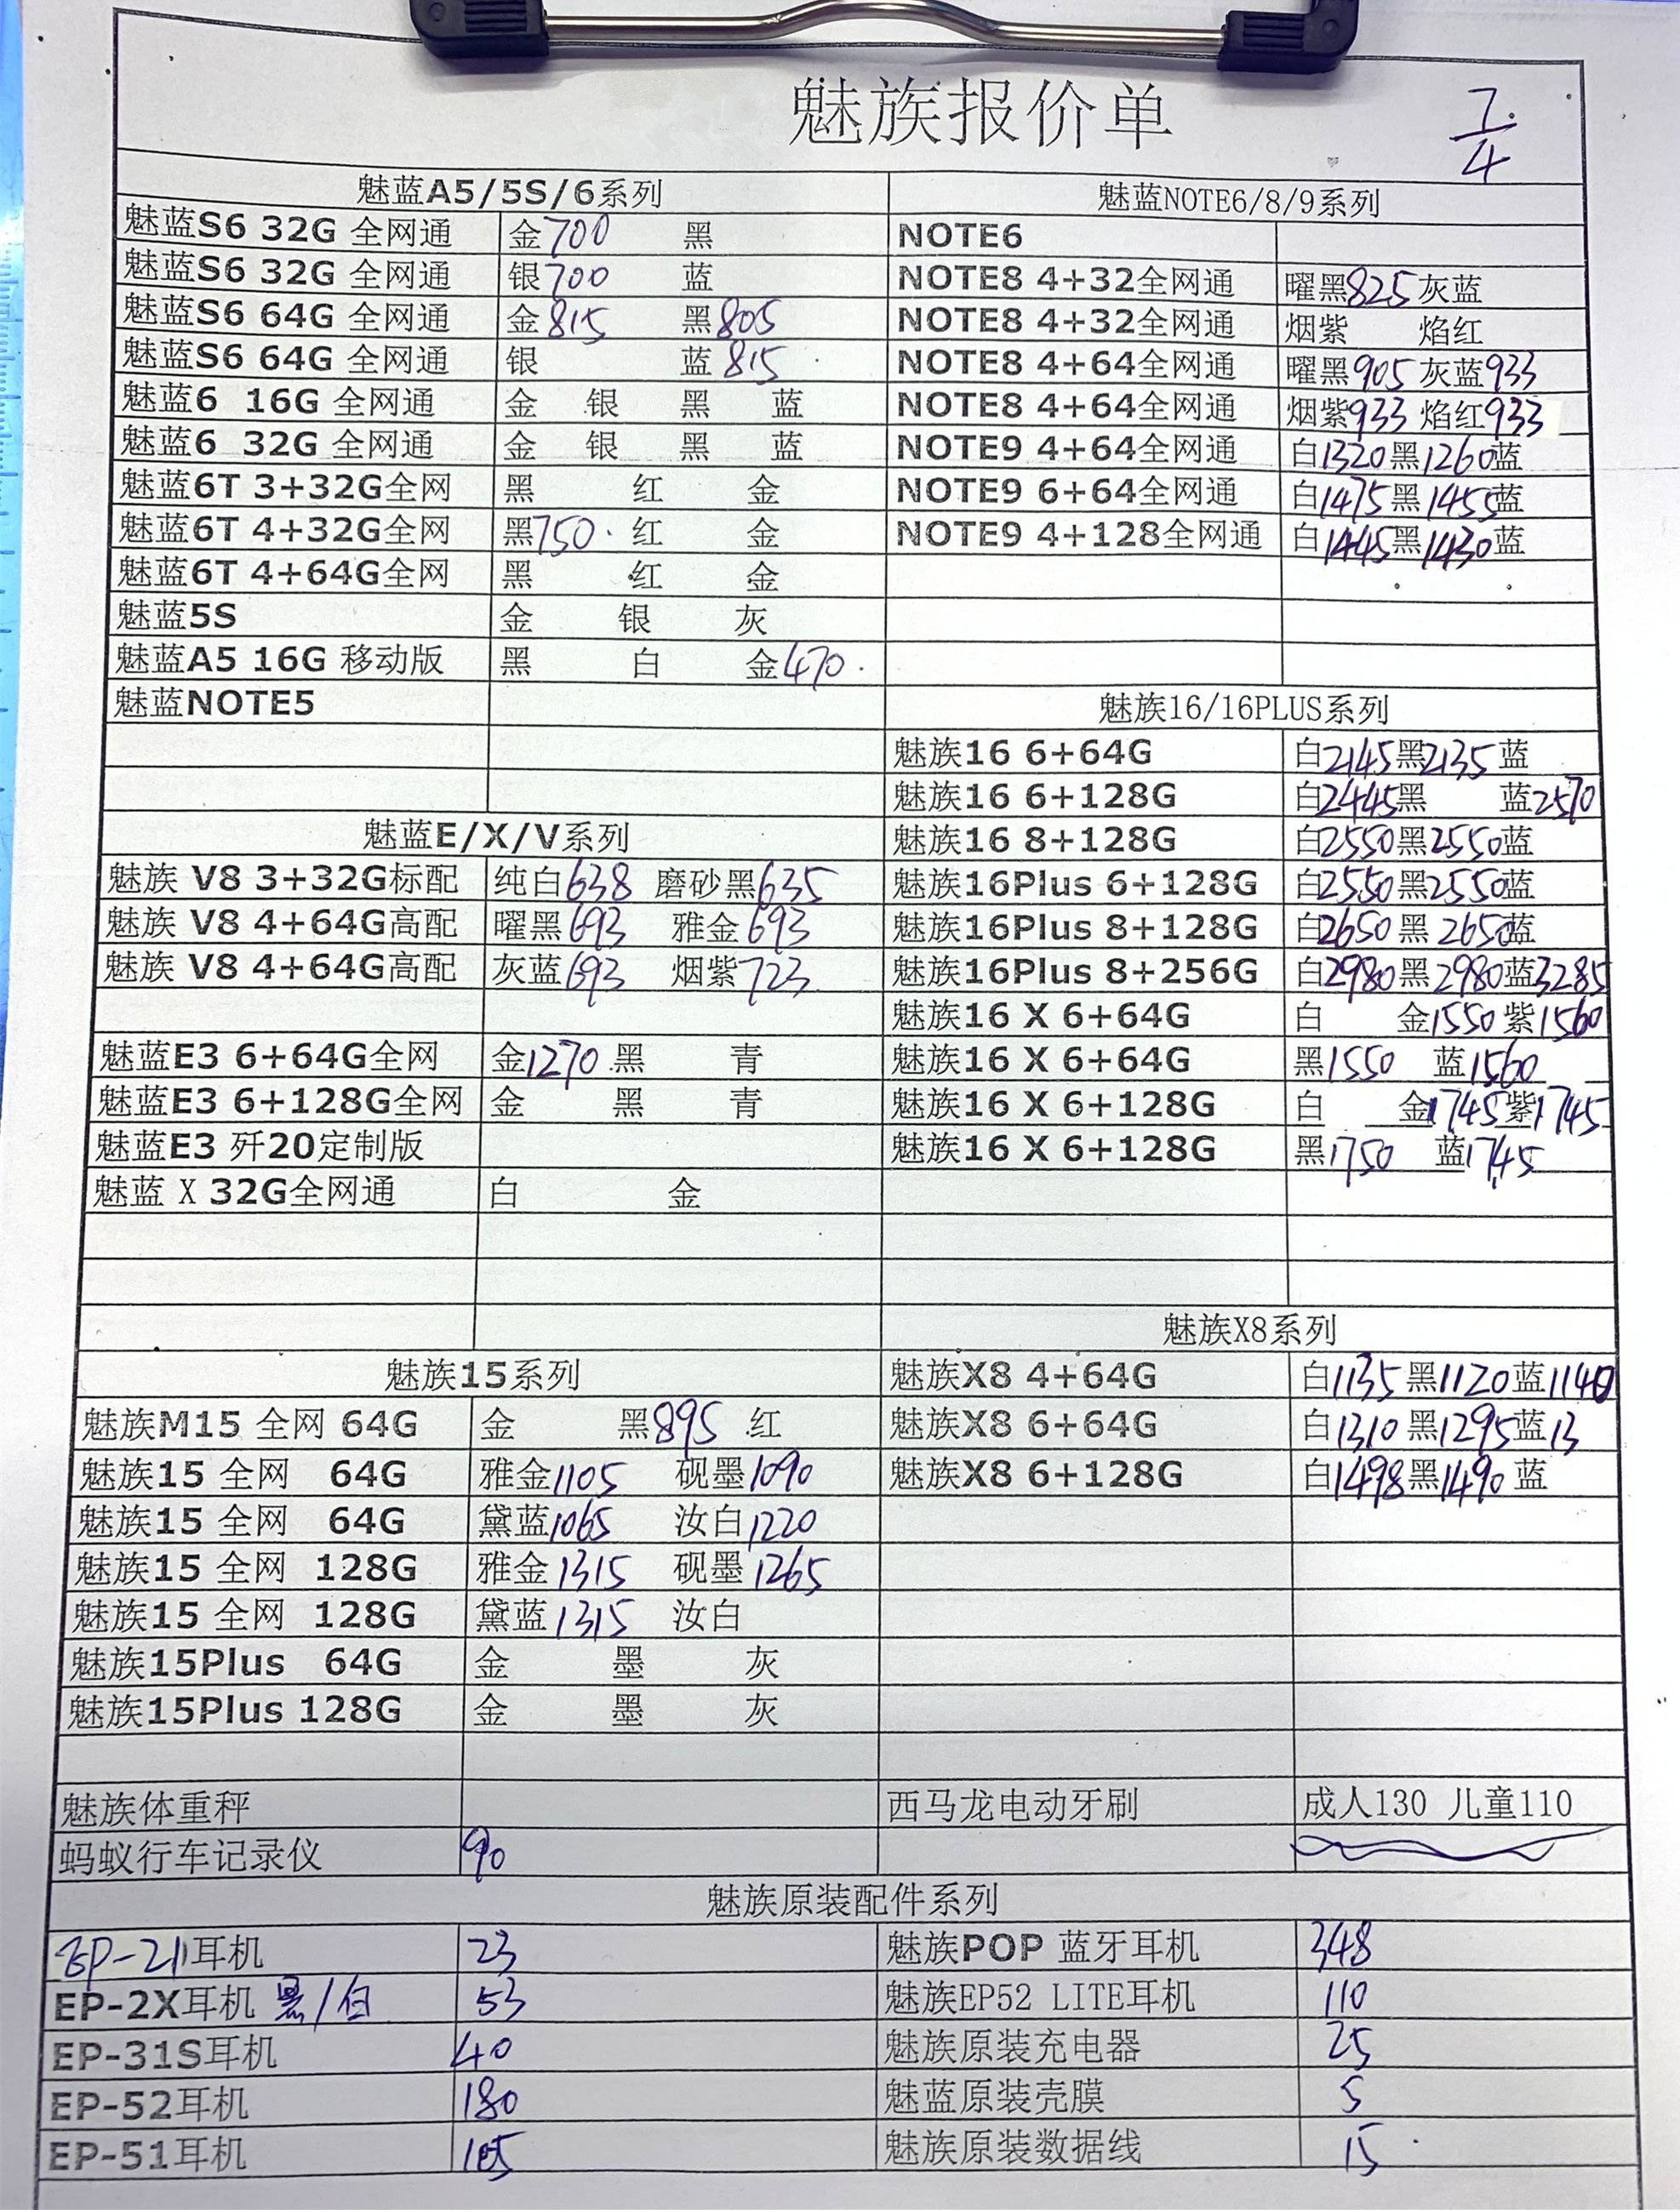 魅族报价单
7/4
魅蓝A5/5S/6系列
魅蓝S6 32G 全网通 金700 黑
魅蓝S6 32G 全网通 银700 蓝
魅蓝S6 64G 全网通 金815 黑805
魅蓝S6 64G 全网通 银 蓝815
魅蓝6 16G 全网通 金 银 黑 蓝
魅蓝6 32G 全网通 金 银 黑 蓝
魅蓝6T 3+32G全网 黑 红 金
魅蓝6T 4+32G全网 黑750 红 金
魅蓝6T 4+64G全网 黑 红 金
魅蓝5S 金 银 灰
魅蓝A5 16G 移动版 黑 白 金470
魅蓝NOTE5
魅蓝E/X/V系列
魅族 V8 3+32G标配 纯白638 磨砂黑635
魅族 V8 4+64G高配 曜黑693 雅金693
魅族 V8 4+64G高配 灰蓝693 烟紫723
魅蓝E3 6+64G全网 金1270 黑 青
魅蓝E3 6+128G全网 金 黑 青
魅蓝E3 歼20定制版
魅蓝 X 32G全网通 白 金
魅族15系列
魅族M15 全网 64G 金 黑895 红
魅族15 全网 64G 雅金1105 砚墨1090
魅族15 全网 64G 黛蓝1065 汝白1220
魅族15 全网 128G 雅金1315 砚墨1265
魅族15 全网 128G 黛蓝1315 汝白
魅族15Plus 64G 金 墨 灰
魅族15Plus 128G 金 墨 灰
魅族体重秤
蚂蚁行车记录仪 90
魅蓝NOTE6/8/9系列
NOTE6
NOTE8 4+32全网通 曜黑825 灰蓝
NOTE8 4+32全网通 烟紫 焰红
NOTE8 4+64全网通 曜黑905 灰蓝933
NOTE8 4+64全网通 烟紫933 焰红933
NOTE9 4+64全网通 白1320黑1260蓝
NOTE9 6+64全网通 白1475黑1455蓝
NOTE9 4+128全网通 白1445黑1430蓝
魅族16/16PLUS系列
魅族16 6+64G 白2145黑2135蓝
魅族16 6+128G 白2445黑 蓝2570
魅族16 8+128G 白2550黑2550蓝
魅族16Plus 6+128G 白2550黑2550蓝
魅族16Plus 8+128G 白2650黑2650蓝
魅族16Plus 8+256G 白2980黑2980蓝3285
魅族16 X 6+64G 白 金1550紫1560
魅族16 X 6+64G 黑1550 蓝1560
魅族16 X 6+128G 白 金1745紫1745
魅族16 X 6+128G 黑1750 蓝1745
魅族X8系列
魅族X8 4+64G 白1135黑1120蓝1140
魅族X8 6+64G 白1310黑1295蓝13
魅族X8 6+128G 白1498黑1490蓝
西马龙电动牙刷 成人130 儿童110
魅族原装配件系列
EP-21耳机 23
EP-2X耳机 黑/白 53
EP-31S耳机 40
EP-52耳机 180
EP-51耳机 105
魅族POP 蓝牙耳机 348
魅族EP52 LITE耳机 110
魅族原装充电器 25
魅蓝原装壳膜 5
魅族原装数据线 15